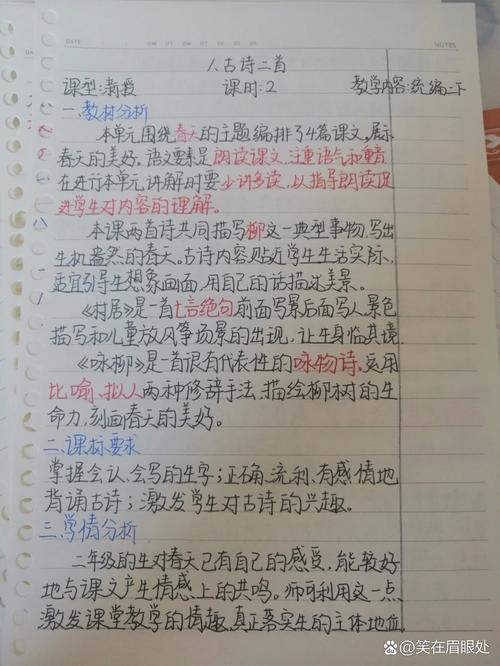 DATE
NOTES
1.古诗二首
课型:新授 课时:2 教学内容:统编二下
一.教材分析
本单元围绕春天的主题编排了4篇课文,展示
春天的美好。语文要素是朗读课文,注重语气和重音
在进行本单元讲解时要少讲多读,以指导朗读促
进学生对内容的理解。
本课两首诗共同描写柳这一典型事物,写出
生机盎然的春天。古诗内容贴近学生生活实际,
适宜引导生想象画面,用自己的话描述美景。
《村居》是一首七言绝句,前面写景后面写人,景色
描写和儿童放风筝场景的出现,让生身临其境
《咏柳》是一首很有代表性的咏物诗,运用
比喻、拟人两种修辞手法,描绘柳树的生
命力,刻画春天的美好。
二.课标要求
掌握会认、会写的生字;正确、流利、有感情地
背诵古诗;激发学生对古诗的兴趣。
三.学情分析
二年级的生对春天已有自己的感受,能较好
地与课文产生情感上的共鸣。师可利用这一点,
激发课堂教学的情趣,真正落实生的主体地位
笑在眉眼处